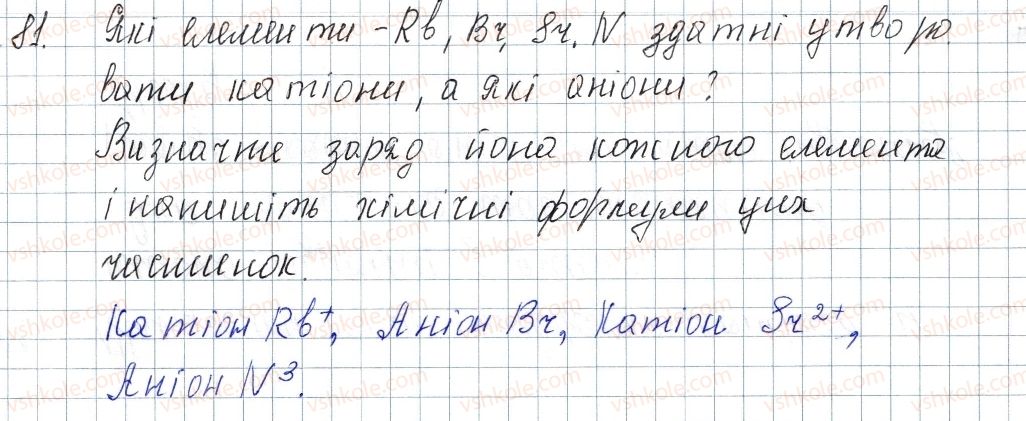 81. Які елементи - Rb, Br, Sr, N здатні утворю
вати катіони, а які аніони?
Визначте заряд йона кожного елемента
і напишіть хімічні формули цих
частинок.
Катіон Rb⁺, Аніон Br, Катіон Sr²⁺,
Аніон N³.